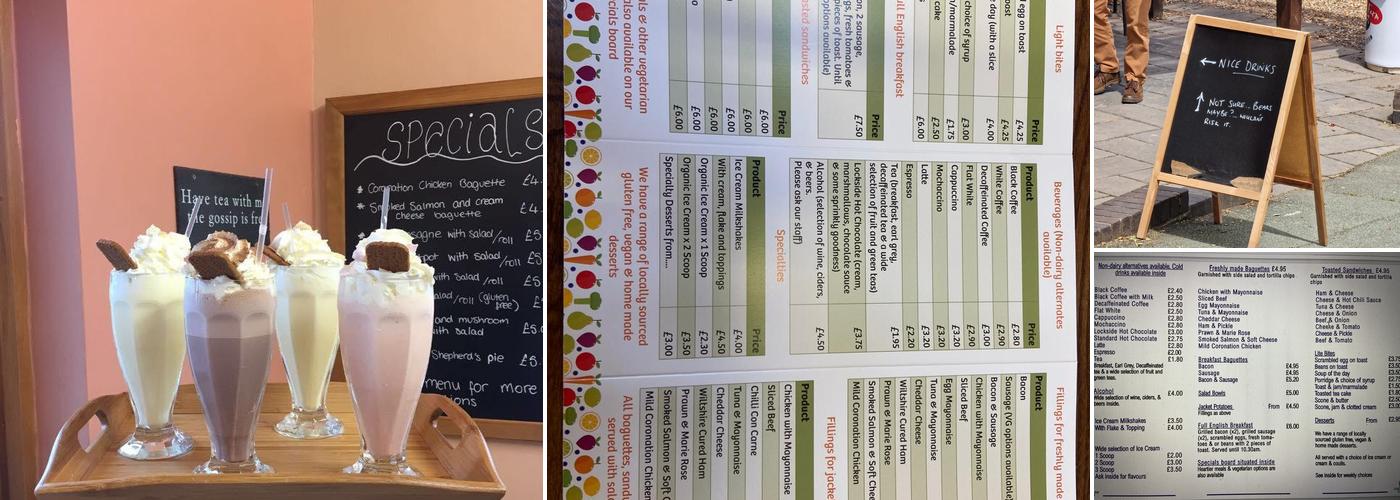 Specials
* Coronation Chicken Baguette £4.
* Smoked Salmon and cream
cheese baguette £4.
with salad/roll £5
with salad /roll £5
with Salad
salad/roll (gluten free)
and mushroom
with Salad
Shepherd's pie £5.
menu for more
Have tea with m
gossip is fre
Light bites
Price
egg on toast £4.25
oast £4.25
day (with a slice £4.00
choice of syrup £3.00
/marmalade £1.75
cake £2.50
£6.00
ll English breakfast
Price
on, 2 sausage,
gs, fresh tomatoes &
pieces of toast. Until
options available) £7.50
asted sandwiches
Price
£6.00
£6.00
£6.00
£6.00
£6.00
ls & other vegetarian
also available on our
cials board
Beverages (Non-dairy alternates
available)
Product Price
Black Coffee £2.80
White Coffee £2.90
Decaffeinated Coffee £3.00
Flat White £2.90
Cappuccino £3.20
Mochaccino £3.20
Latte £3.20
Espresso £2.20
Tea (breakfast, earl grey,
decaffeinated tea & a wide
selection of fruit and green teas) £1.95
Lockside Hot Chocolate (cream,
marshmallows, chocolate sauce
& some sprinkly goodness) £3.75
Alcohol (selection of wine, ciders,
& beers.
Please ask our staff) £4.50
Specialties
Product Price
Ice Cream Milkshakes £4.00
With cream, flake and toppings £4.50
Organic Ice Cream x 1 Scoop £2.30
Organic Ice Cream x 2 Scoop £3.50
Specialty Desserts from.... £3.00
We have a range of locally sourced
gluten free, vegan & home made
desserts
Fillings for freshly made
Product
Bacon
Sausage (VG options available)
Bacon & Sausage
Chicken with Mayonnaise
Sliced Beef
Egg Mayonnaise
Tuna & Mayonnaise
Cheddar Cheese
Wiltshire Cured Ham
Prawn & Marie Rose
Smoked Salmon & Soft Chee
Mild Coronation Chicken
Fillings for jacke
Product
Chicken with Mayonnaise
Sliced Beef
Chilli Con Carne
Tuna & Mayonnaise
Cheddar Cheese
Wiltshire Cured Ham
Prawn & Marie Rose
Smoked Salmon & Soft C
Mild Coronation Chicken
All baguettes, sand
served with sal
← NICE DRINKS
↑ NOT SURE.. BEARS
MAYBE?.. WOULDN'T
RISK IT.
Non-dairy alternatives available. Cold
drinks available inside
Black Coffee £2.40
Black Coffee with Milk £2.50
Decaffeinated Coffee £2.80
Flat White £2.50
Cappuccino £2.80
Mochaccino £2.80
Lockside Hot Chocolate £3.00
Standard Hot Chocolate £2.75
Latte £2.80
Espresso £2.00
Tea £1.80
Breakfast, Earl Grey, Decaffeinated
tea & a wide selection of fruit and
green teas.
Alcohol £4.00
Wide selection of wine, ciders, &
beers inside.
Ice Cream Milkshakes £3.50
With Flake & Topping £4.00
Wide selection of Ice Cream
1 Scoop £2.00
2 Scoops £3.00
3 Scoops £3.50
Ask inside for flavours
Freshly made Baguettes £4.95
Garnished with side salad and tortilla chips
Chicken with Mayonnaise
Sliced Beef
Egg Mayonnaise
Tuna & Mayonnaise
Cheddar Cheese
Ham & Pickle
Prawn & Marie Rose
Smoked Salmon & Soft Cheese
Mild Coronation Chicken
Breakfast Baguettes
Bacon £4.95
Sausage £4.95
Bacon & Sausage £5.20
Salad Bowls £5.00
Jacket Potatoes From £4.50
Fillings as above
Full English Breakfast £6.00
Grilled bacon (x2), grilled sausage
(x2), scrambled eggs, fresh toma-
toes & or beans with 2 pieces of
toast. Served until 10.30am.
Specials board situated inside
Heartier meals & vegetarian options are
also available
Toasted Sandwiches £4.95
Garnished with side salad and tortilla
chips
Ham & Cheese
Cheese & Hot Chilli Sauce
Tuna & Cheese
Cheese & Onion
Beef & Onion
Cheese & Tomato
Cheese & Pickle
Beef & Tomato
Lite Bites
Scrambled egg on toast £3.75
Beans on toast
Soup of the day
Porridge & choice of syrup
Toast & jam/marmalade
Toasted tea cake
Scone & butter
Scone, jam & clotted cream
Desserts From
We have a range of locally
sourced gluten free, vegan &
home made desserts.
All served with a choice of ice cream or
cream & coulis.
See inside for weekly choices